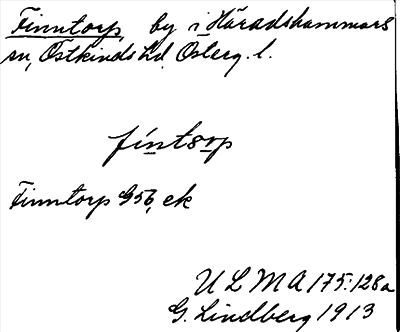 Finntorp, by i Häradshammars
sn, Östkinds hd, Österg. l.
fìntɷrp
Finntorp G56, ek
ULMA 175:128a
G. Lindberg 1913